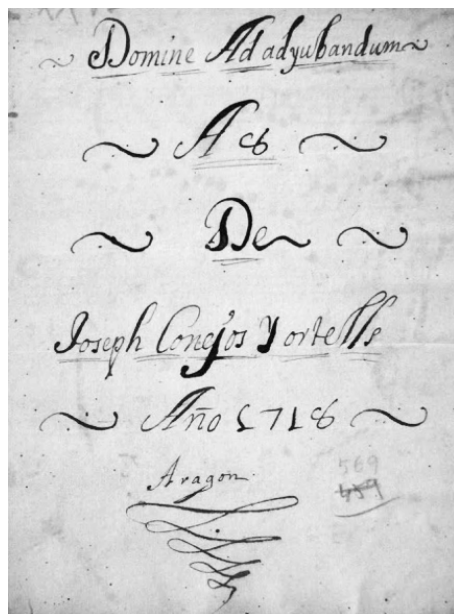 Domine Ad adyubandum
A 8
De
Joseph Conejos Y ortells
Año 1718
Aragon
569